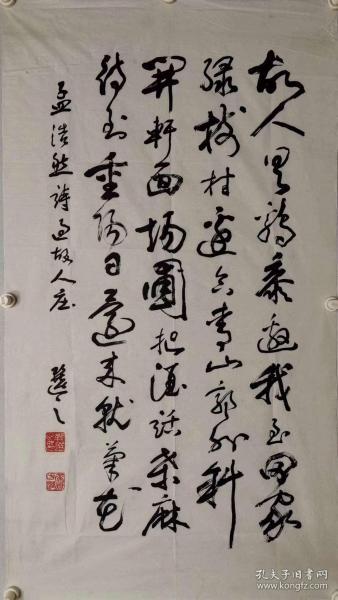 故人具鷄黍邀我至田家
緑樹村邊合青山郭外斜
開軒面場圃把酒話桑麻
待到重陽日還来就菊花
孟浩然詩過故人庄
孔夫子旧书网
www.kongfz.com